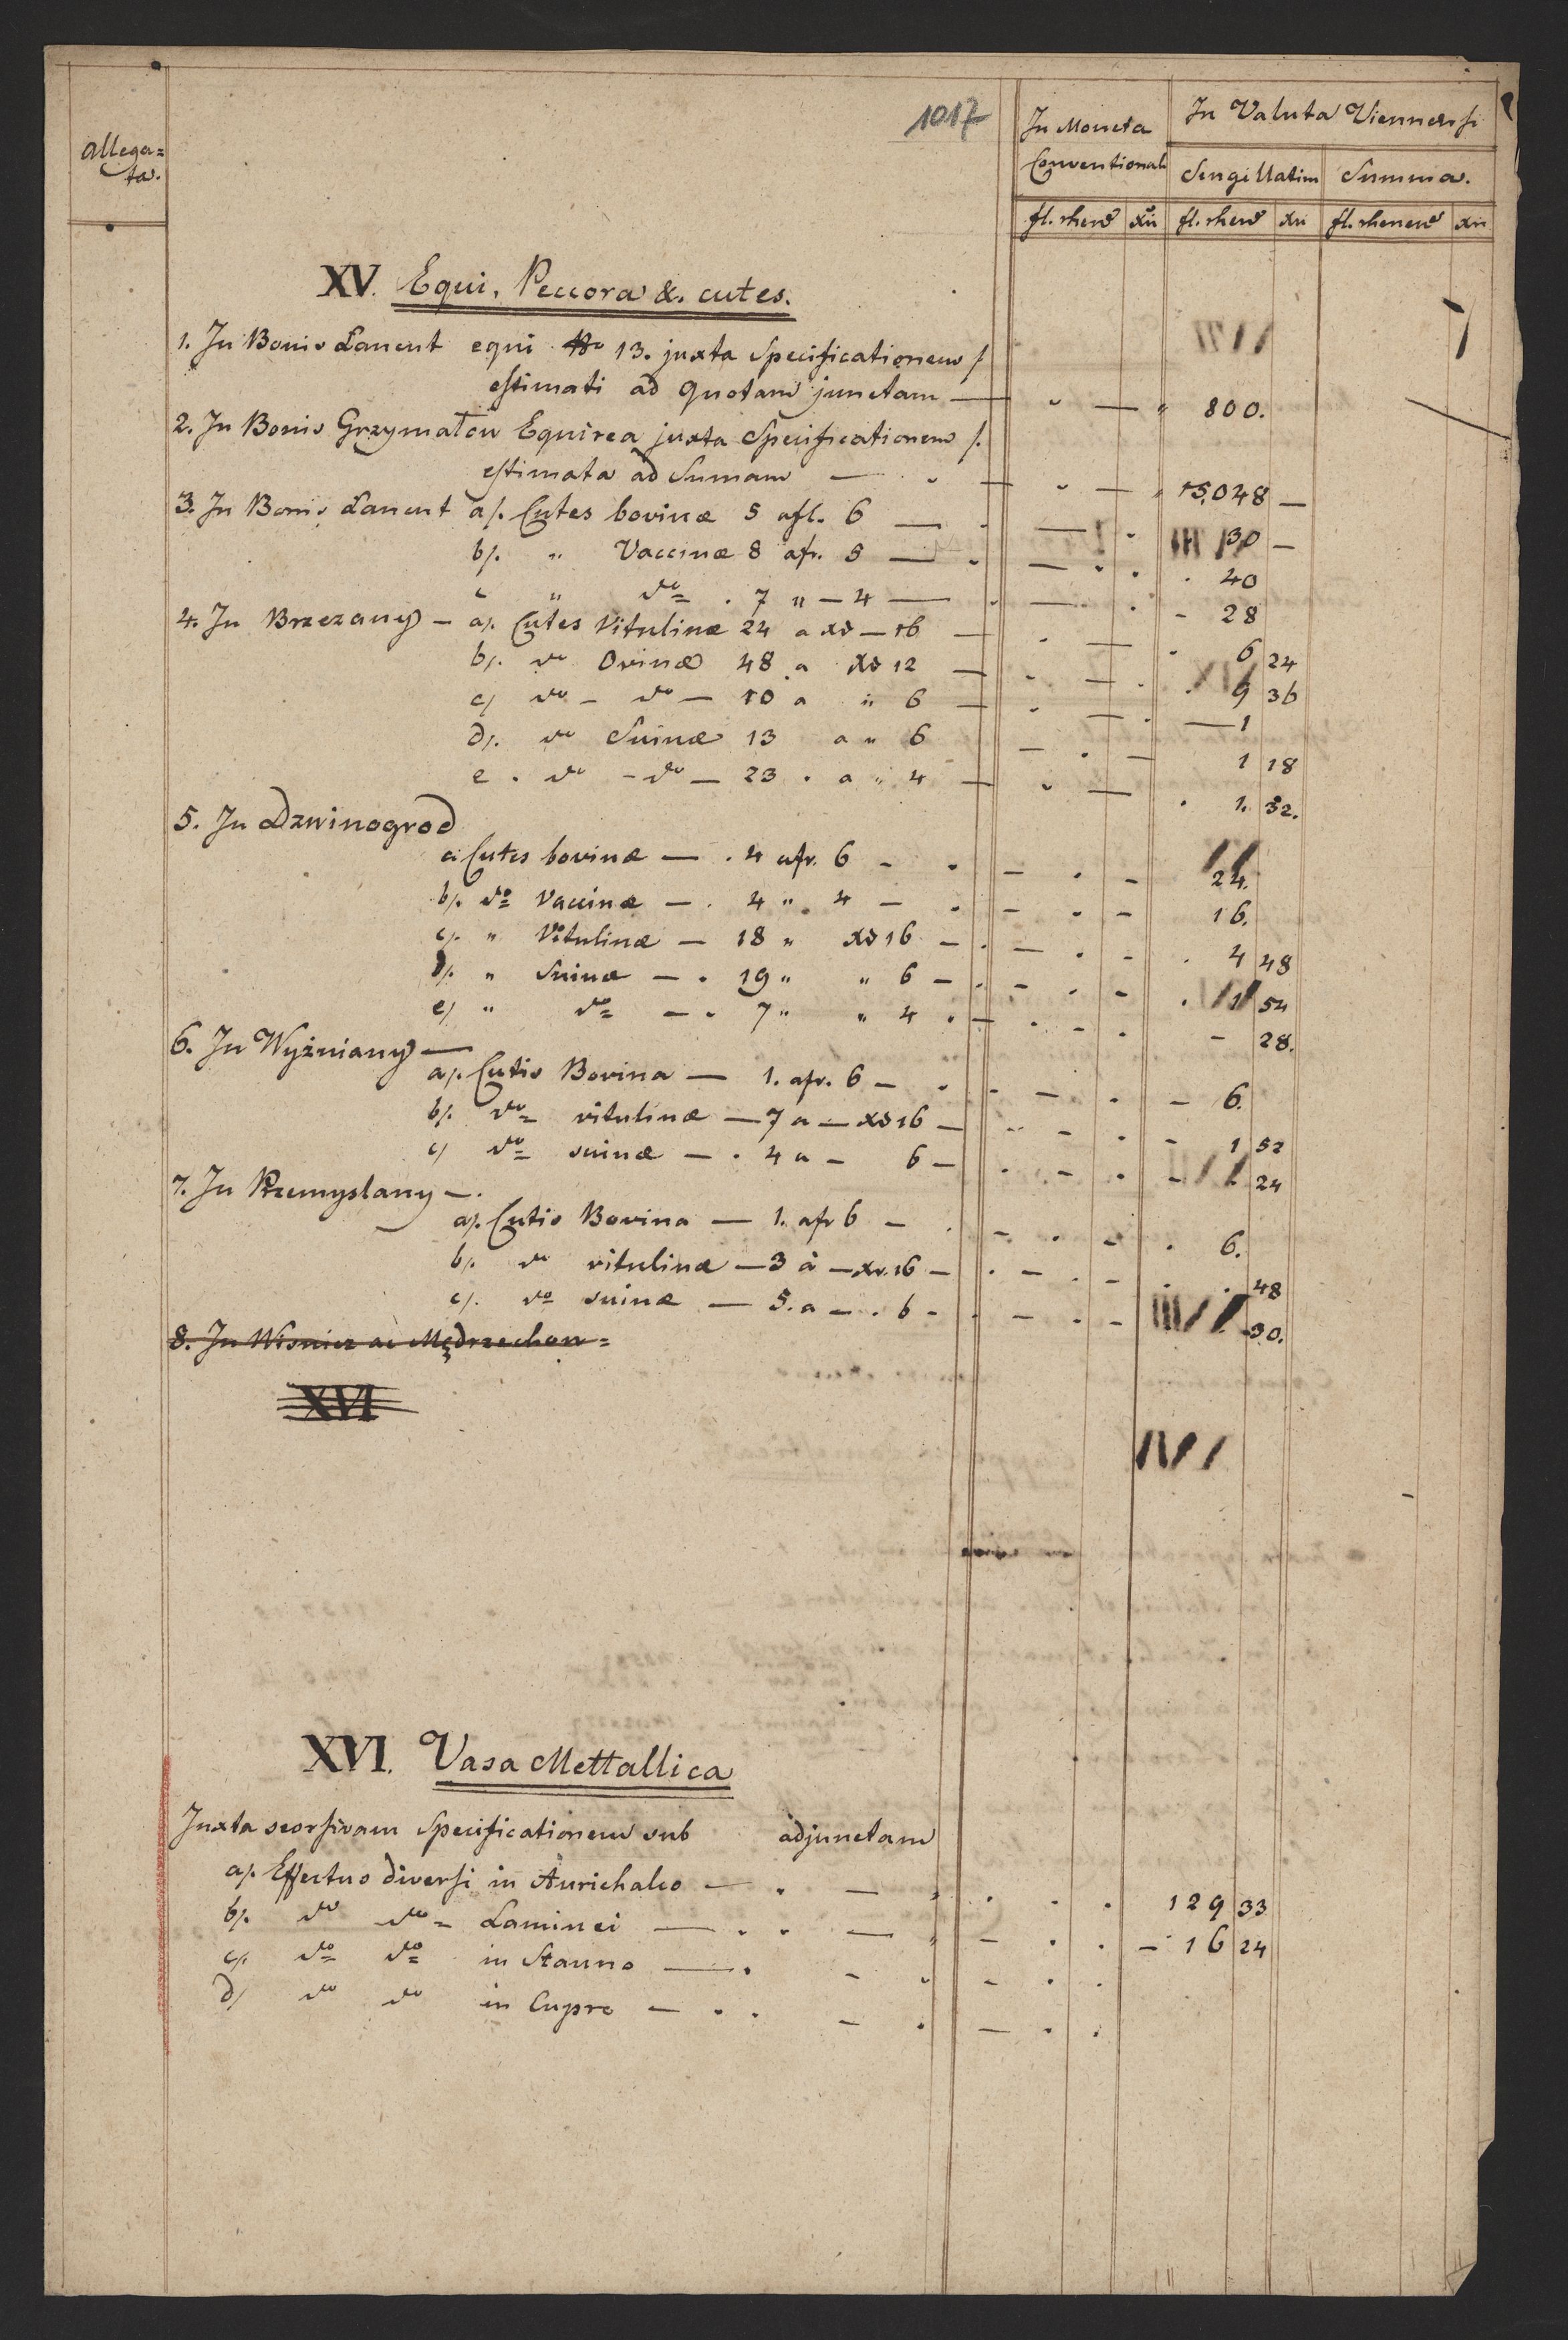 1017
allega=
ta.
In Moneta
Conventionali
In Valuta Viennensi
Singillatim
Summa.
fl. rhen xri fl. rhen xri fl. rhenen xri
XV. Equi, Peccora &. cutes.
1. In Bonis Lancut equi No 13. juxta Specificationem /.
estimati ad quotam junctam — " — " 800.
2. In Bonis Grzymałow Equirea juxta Specificationem /.
estimata ad Sumam — " — " — " 15,048 —
3. In Bonis Lancut a/. Cutes bovinæ 5 afl. 6 — 30 —
b/. " Vaccinæ 8 afr. 5 — 40
c " do . 7 " — 4 — 28
4. In Brzezany — a/. Cutes Vitulinæ 24 a xr — 16 — 6 24
b/. do Ovinæ 48 a xr 12 — 9 36
c/ do — do — 10 a " 6 — 1
d/. do Suinæ 13 a " 6 — 1 18
e . do — do — 23 . a " 4 — 1. 32.
5. In Dzwinogrod
a Cutes bovinæ — . 4 afr. 6 - 24.
b/. do Vaccinæ — . 4 " 4 — 16.
c/. " Vitulinæ — 18 " xr 16 — 4 48
d/. " Suinæ — . 19 " " 6 — 1 54
e/ " do — . 7 " " 4 . — 28.
6. In Wyżniany —
a/. Cutis Bovina — 1. afr. 6 — 6.
b/. do vitulinæ — 7 a — xr 16 — 1 52
c/ do suinæ — . 4 a — 6 — 24
7. In Przemyslany — .
a/. Cutis Bovina — 1. afr 6 — 6.
b/. do vitulinæ — 3 à — xr. 16 — 48
c/. do suinæ — 5. a — . 6 - 30.
8. In Wisnicz ac Mędrzechow =
XVI
XVI. Vasa Mettallica
Juxta seorsivam Specificationem sub adjunctam
a/. Effectus diversi in Aurichalco — . — 129 33
b/. do do Laminei — . . — 16 24
c/. do do in Stanno — .
d/ do do in Cupro — . .